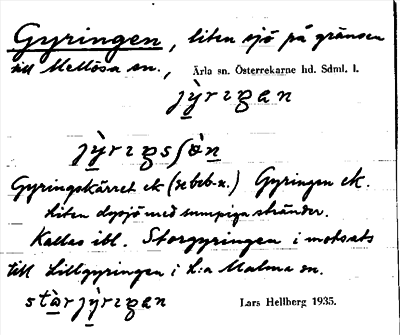 Gyringen, liten sjö på gränsen
till Mellösa sn., Ärla sn. Österrekarne hd. Sdml. l.
jỳrıŋan
jỳrıŋsʃø̀n
Gyringskärret ek (se beb.-n.) Gyringen ek.
Liten dysjö med sumpiga stränder.
Kallas ibl. Storgyringen i motsats
till Lillgyringen i L:a Malma sn.
stàrjỳrıŋan Lars Hellberg 1935.